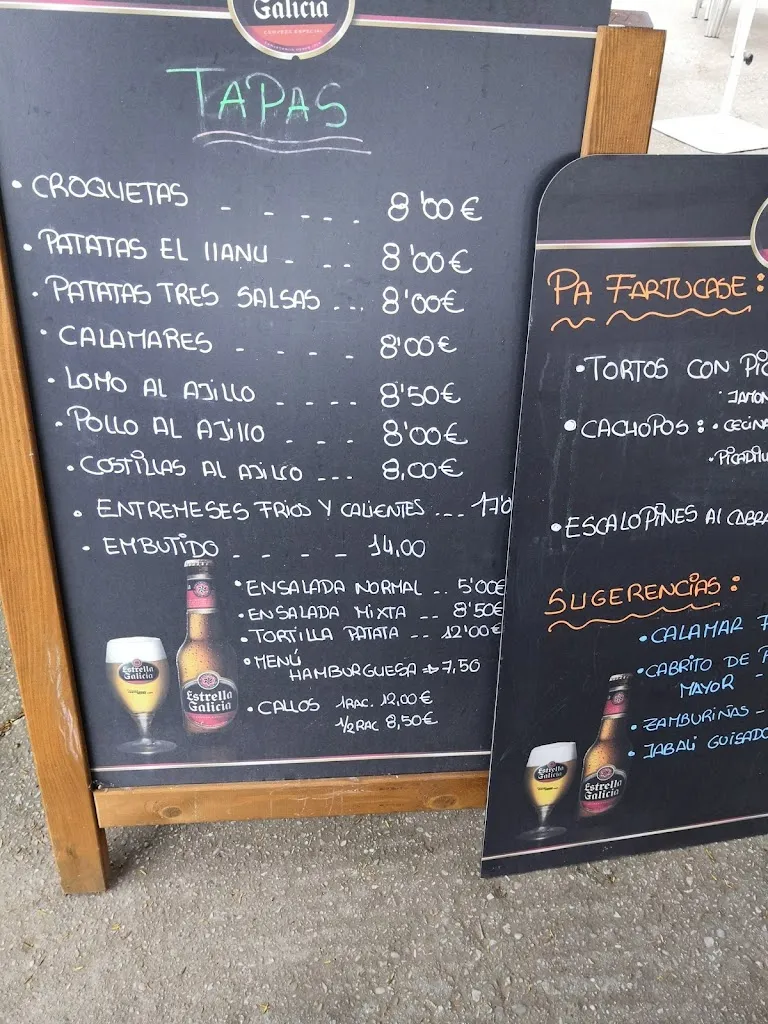 Galicia
CERVEZA ESPECIAL
TAPAS
• CROQUETAS _ _ _ _ _ 8'00€
• PATATAS EL LLANU - -- 8'00€
• PATATAS TRES SALSAS ... 8'00€
• CALAMARES _ _ _ _ 8'00€
• LOMO AL AJILLO _ _ _ _ 8'50€
• POLLO AL AJILLO _ _ _ 8'00€
• COSTILLAS AL AJILLO --- 8,00€
• ENTREMESES FRIOS Y CALIENTES ... 17'0
• EMBUTIDO _ _ _ _ 14,00
• ENSALADA NORMAL .. 5'00€
• ENSALADA MIXTA -- 8'50€
• TORTILLA PATATA -- 12'00€
• MENÚ
HAMBURGUESA → 7,50
• CALLOS 1RAC. 12,00€
1/2 RAC 8,50€
Estrella
Galicia
Estrella
Galicia
PA FARTUCASE:
• TORTOS CON PIC
JAMON
• CACHOPOS: • CECINA
• PICADILL
• ESCALOPINES AL CABRA
SUGERENCIAS:
• CALAMAR
• CABRITO DE
MAYOR -
• ZAMBURIÑAS -
• JABALÍ GUISADO
Estrella
Galicia
Estrella
Galicia